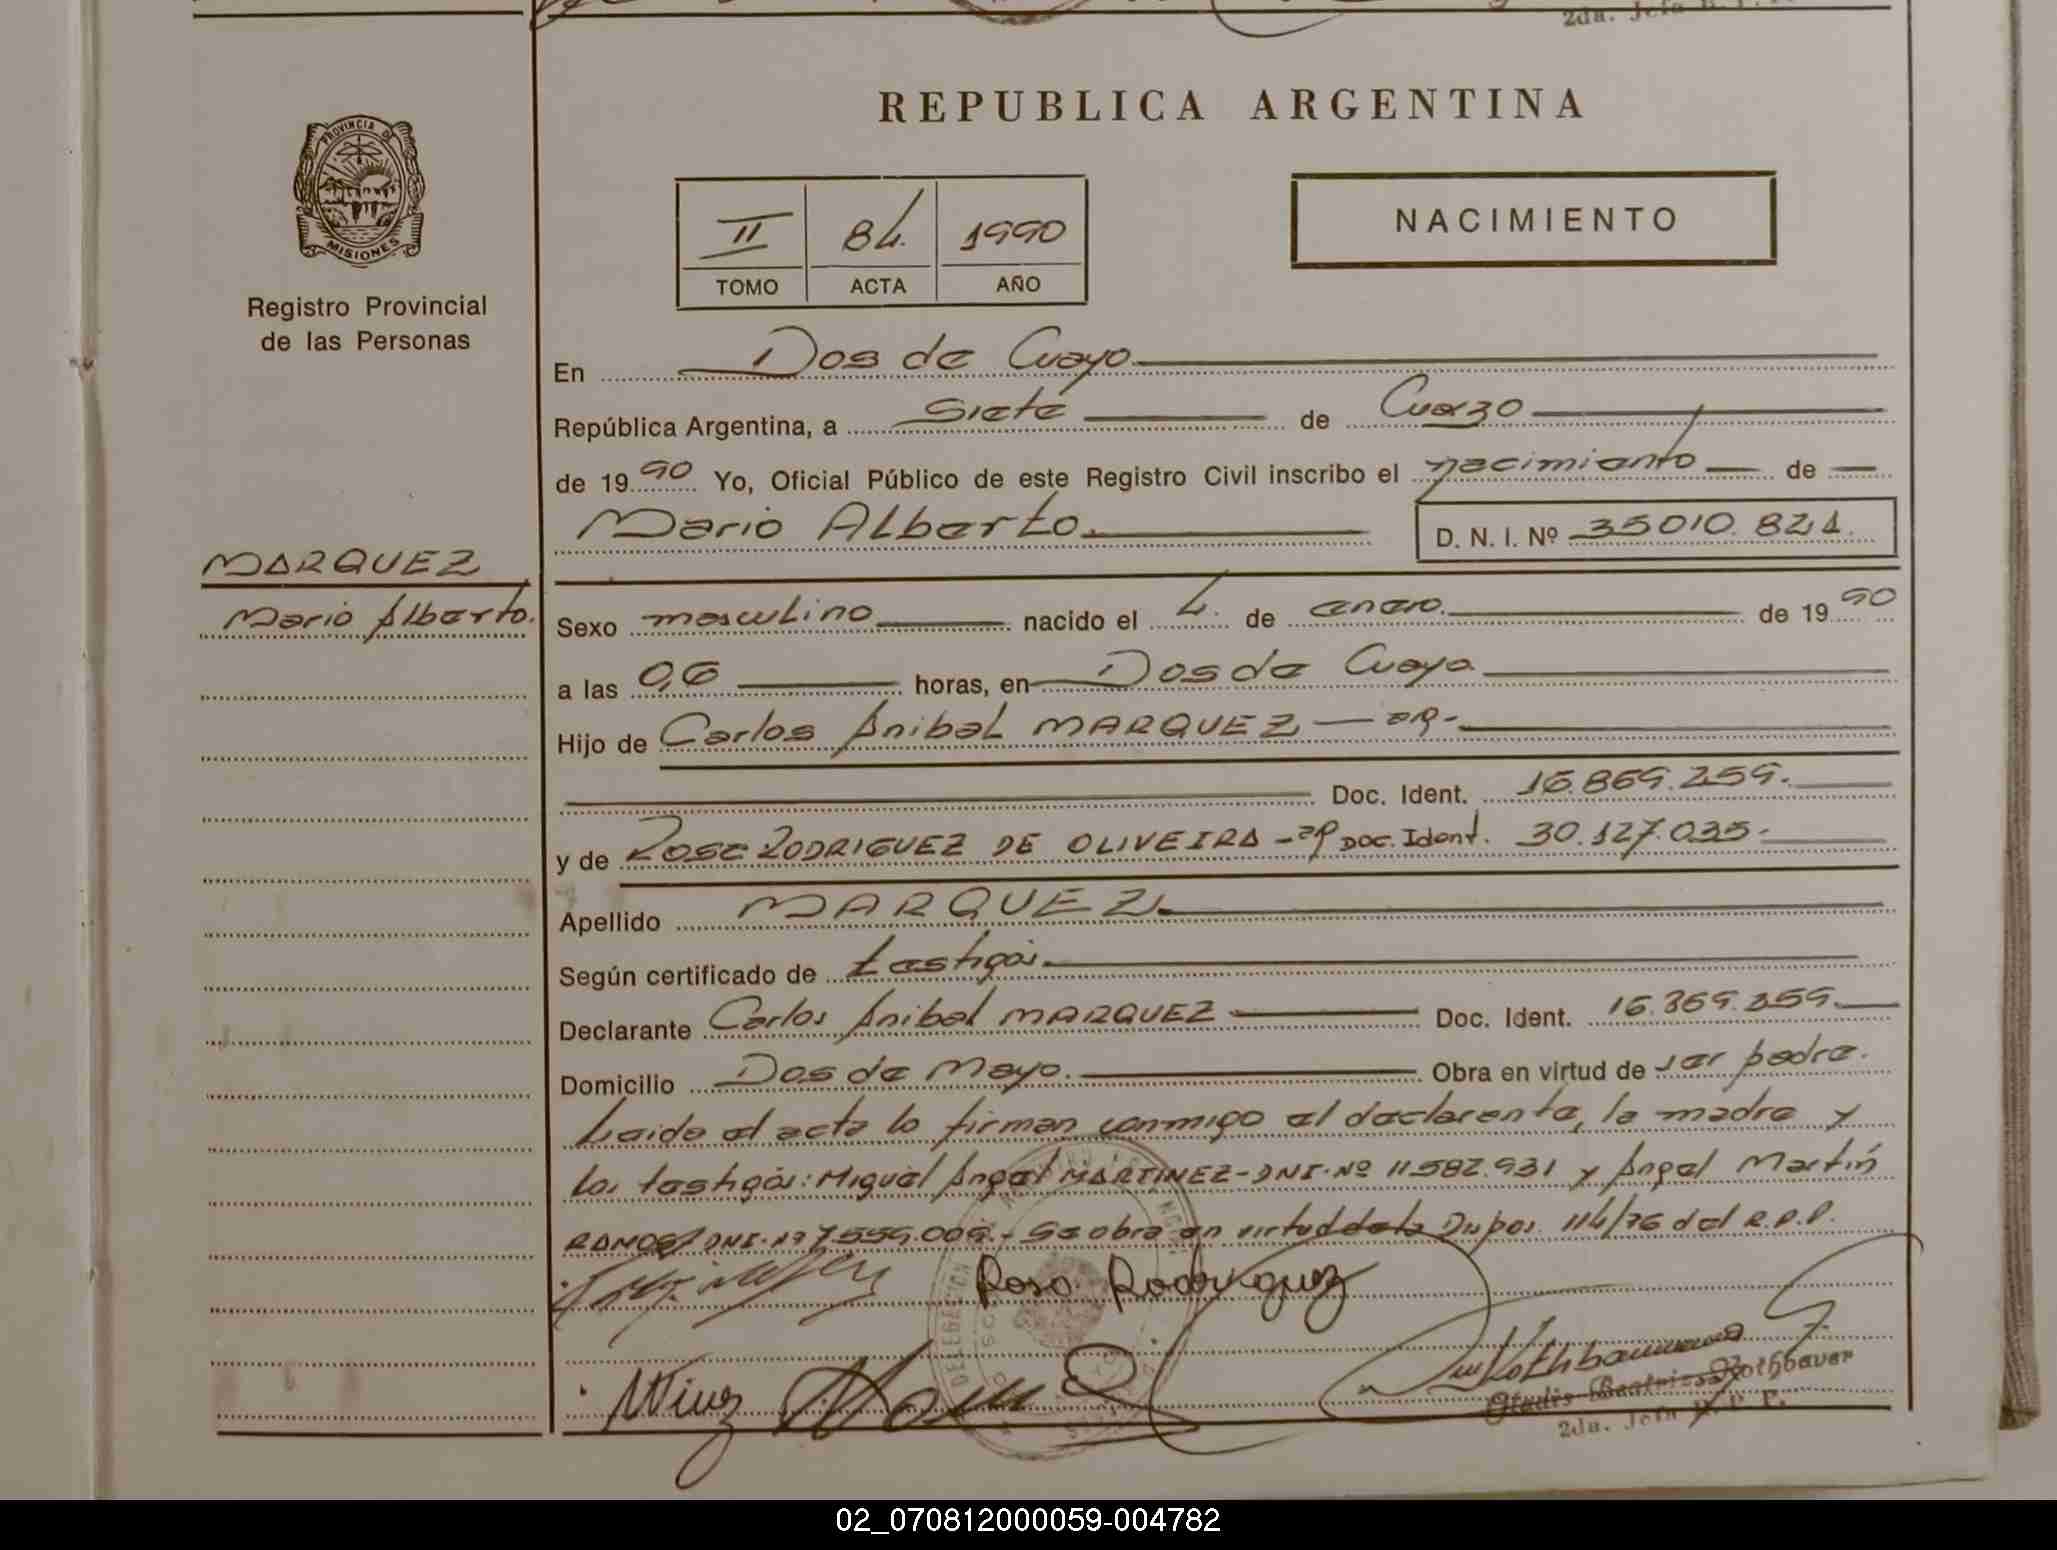 2da. Jefa R. P. P.
REPUBLICA ARGENTINA
PROVINCIA D
MISIONES
Registro Provincial
de las Personas
II 84. 1990
TOMO ACTA AÑO
NACIMIENTO
En Dos de Mayo
República Argentina, a Siete de Marzo
de 1990 Yo, Oficial Público de este Registro Civil inscribo el nacimiento de
Mario Alberto. D. N. I. Nº 35010.821.
MARQUEZ
Mario Alberto.
Sexo masculino nacido el 4. de enero. de 1990
a las 06 horas, en Dos de Mayo
Hijo de Carlos Anibal MARQUEZ - ar-
Doc. Ident. 16.869.259.
y de Rosa RODRIGUEZ DE OLIVEIRA - ar Doc. Ident. 30.127.035-
Apellido MARQUEZ
Según certificado de testigos.
Declarante Carlos Anibal MARQUEZ Doc. Ident. 16.869.259.
Domicilio Dos de Mayo. Obra en virtud de ser padre.
Leida el acta lo firman conmigo el declarante, la madre y
los testigos: Miguel Angel MARTINEZ-DNI-Nº 11.582.931 y Angel Martín
RAMOS DNI-Nº 7.559.009.- Se obra en virtud de la Dispos. 114/76 del R.P.P.
Rosa Rodriguez
DELEGACION
Gladis Beatriz Rothbauer
2da. Jefa R. P. P.
02_070812000059-004782